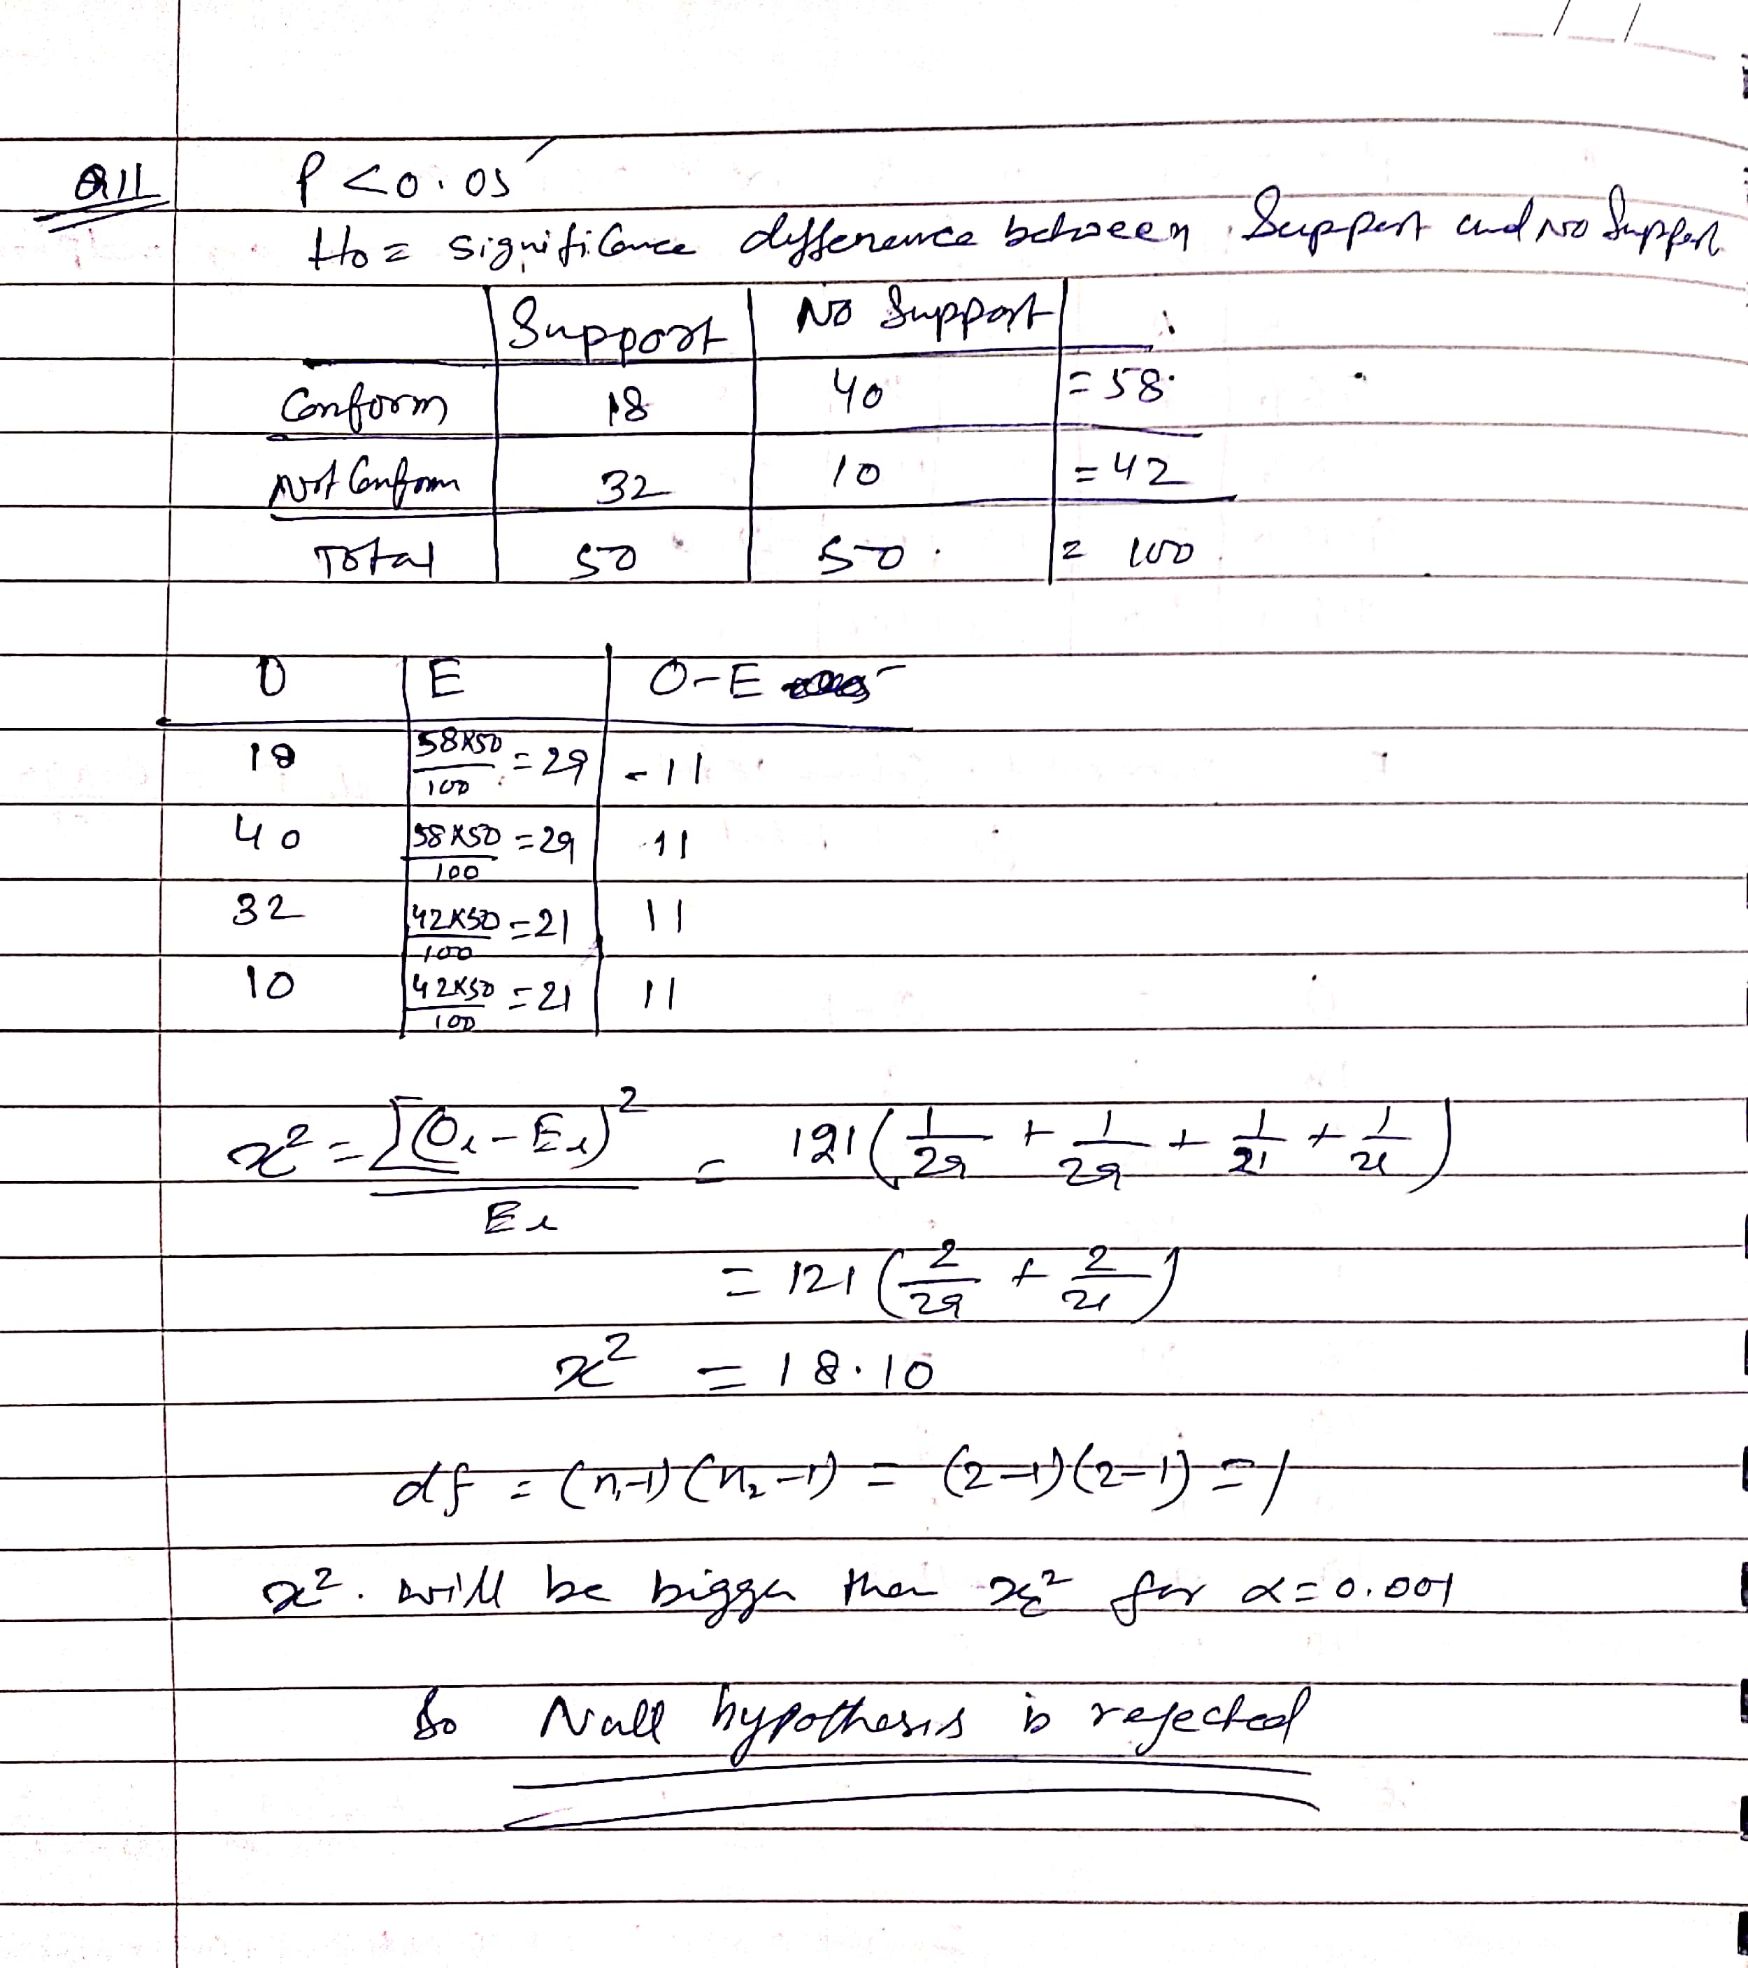 _/_/_
Q11 P<0.05
H0 = significance difference between Support and No Support
Support No Support
Conform 18 40 = 58
Not Conform 32 10 = 42
Total 50 50 = 100
O E O-E
18 58x50/100 = 29 -11
40 58x50/100 = 29 11
32 42x50/100 = 21 11
10 42x50/100 = 21 11
x² = Σ(Oi-Ei)²/Ei = 121(1/29 + 1/29 + 1/21 + 1/21)
= 121(2/29 + 2/21)
x² = 18.10
df = (n1-1)(n2-1) = (2-1)(2-1) = 1
x². will be bigger than xc² for α=0.001
So Null hypothesis is rejected